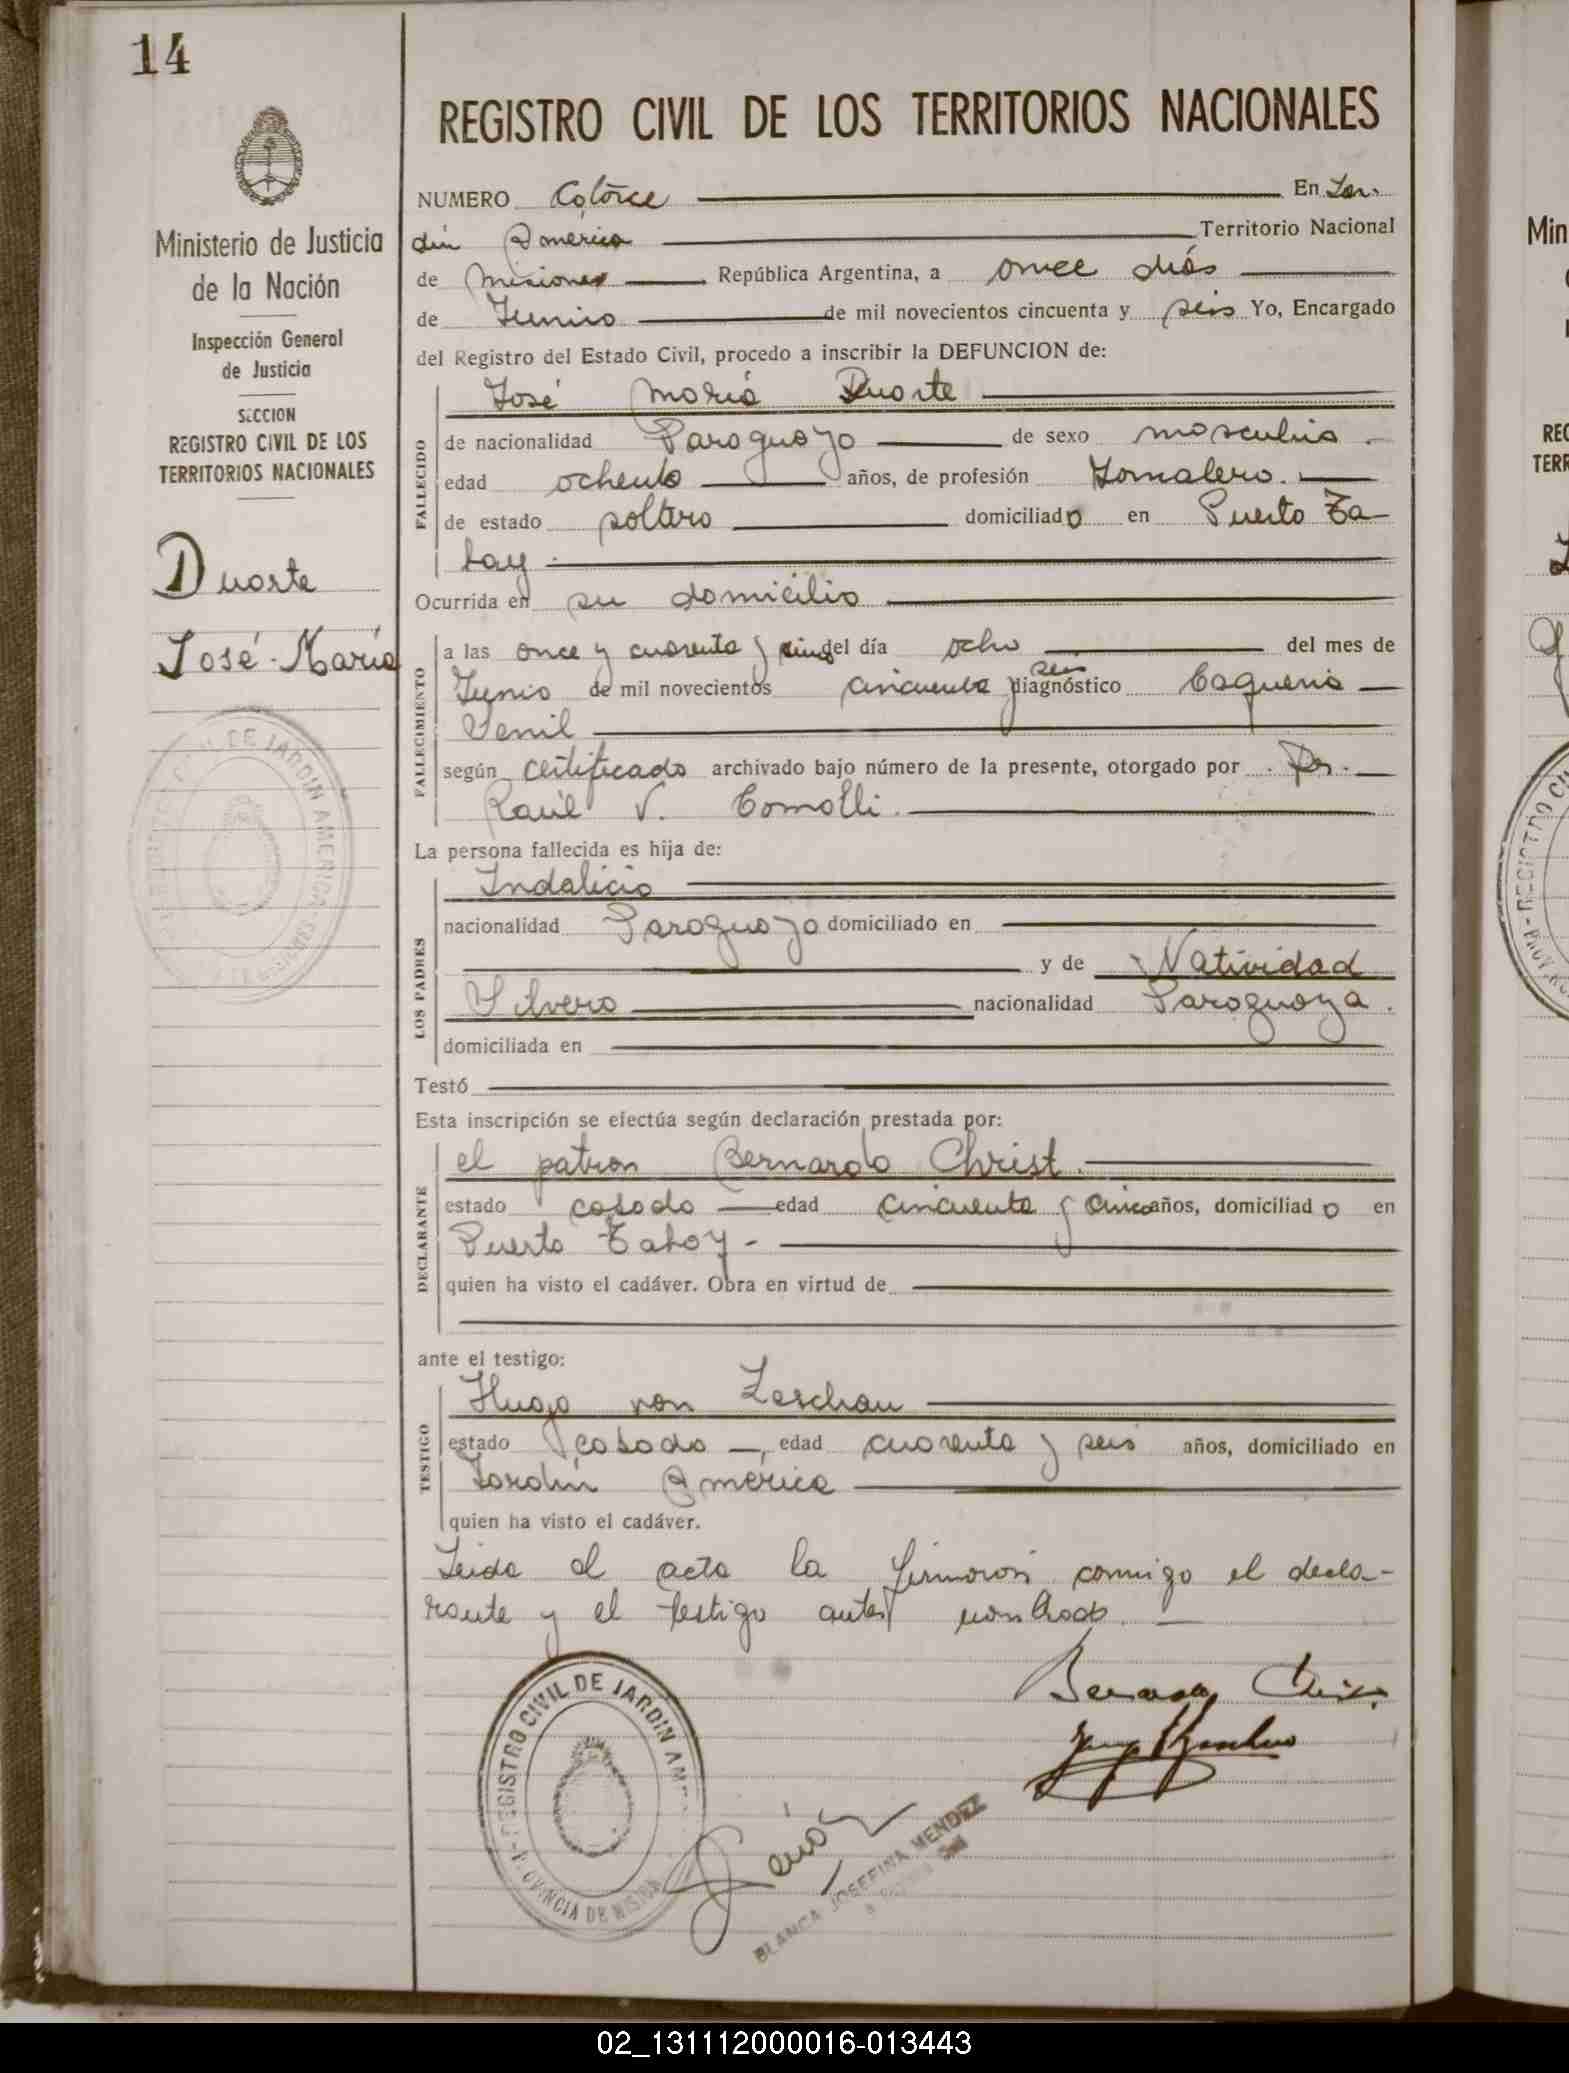 14
Ministerio de Justicia
de la Nación
Inspección General
de Justicia
SECCION
REGISTRO CIVIL DE LOS
TERRITORIOS NACIONALES
Duarte
José María
REGISTRO CIVIL DE LOS TERRITORIOS NACIONALES
NUMERO Catorce En Jar-
dín America Territorio Nacional
de Misiones República Argentina, a once días
de Junio de mil novecientos cincuenta y seis Yo, Encargado
del Registro del Estado Civil, procedo a inscribir la DEFUNCION de:
José María Duarte
FALLECIDO
de nacionalidad Paraguayo de sexo masculino.
edad ochenta años, de profesión Jornalero.
de estado soltero domiciliado en Puerto Ta-
bay
Ocurrida en su domicilio
FALLECIMIENTO
a las once y cuarenta y cinco del día ocho del mes de
Junio de mil novecientos cincuenta y seis diagnóstico Caquexia
Senil
según certificado archivado bajo número de la presente, otorgado por Dr.
Raúl V. Comolli.
La persona fallecida es hija de:
LOS PADRES
Indalicio
nacionalidad Paraguayo domiciliado en
y de Natividad
Silvero nacionalidad Paraguaya.
domiciliada en
Testó
Esta inscripción se efectúa según declaración prestada por:
DECLARANTE
el patron Bernardo Christ.
estado casado edad cincuenta y cinco años, domiciliado en
Puerto Tabay -
quien ha visto el cadáver. Obra en virtud de
ante el testigo:
TESTIGO
Hugo von Zeschau
estado casado, edad cuarenta y seis años, domiciliado en
Jardín América
quien ha visto el cadáver.
Leida el acta la firmaron conmigo el decla-
rante y el testigo antes nombrado.
Bernardo Christ
REGISTRO CIVIL DE JARDÍN AM
PROVINCIA DE MISIO
BLANCA JOSEFINA MENDEZ
REGISTRO CIVIL DE JARDIN AMERICA
02_131112000016-013443